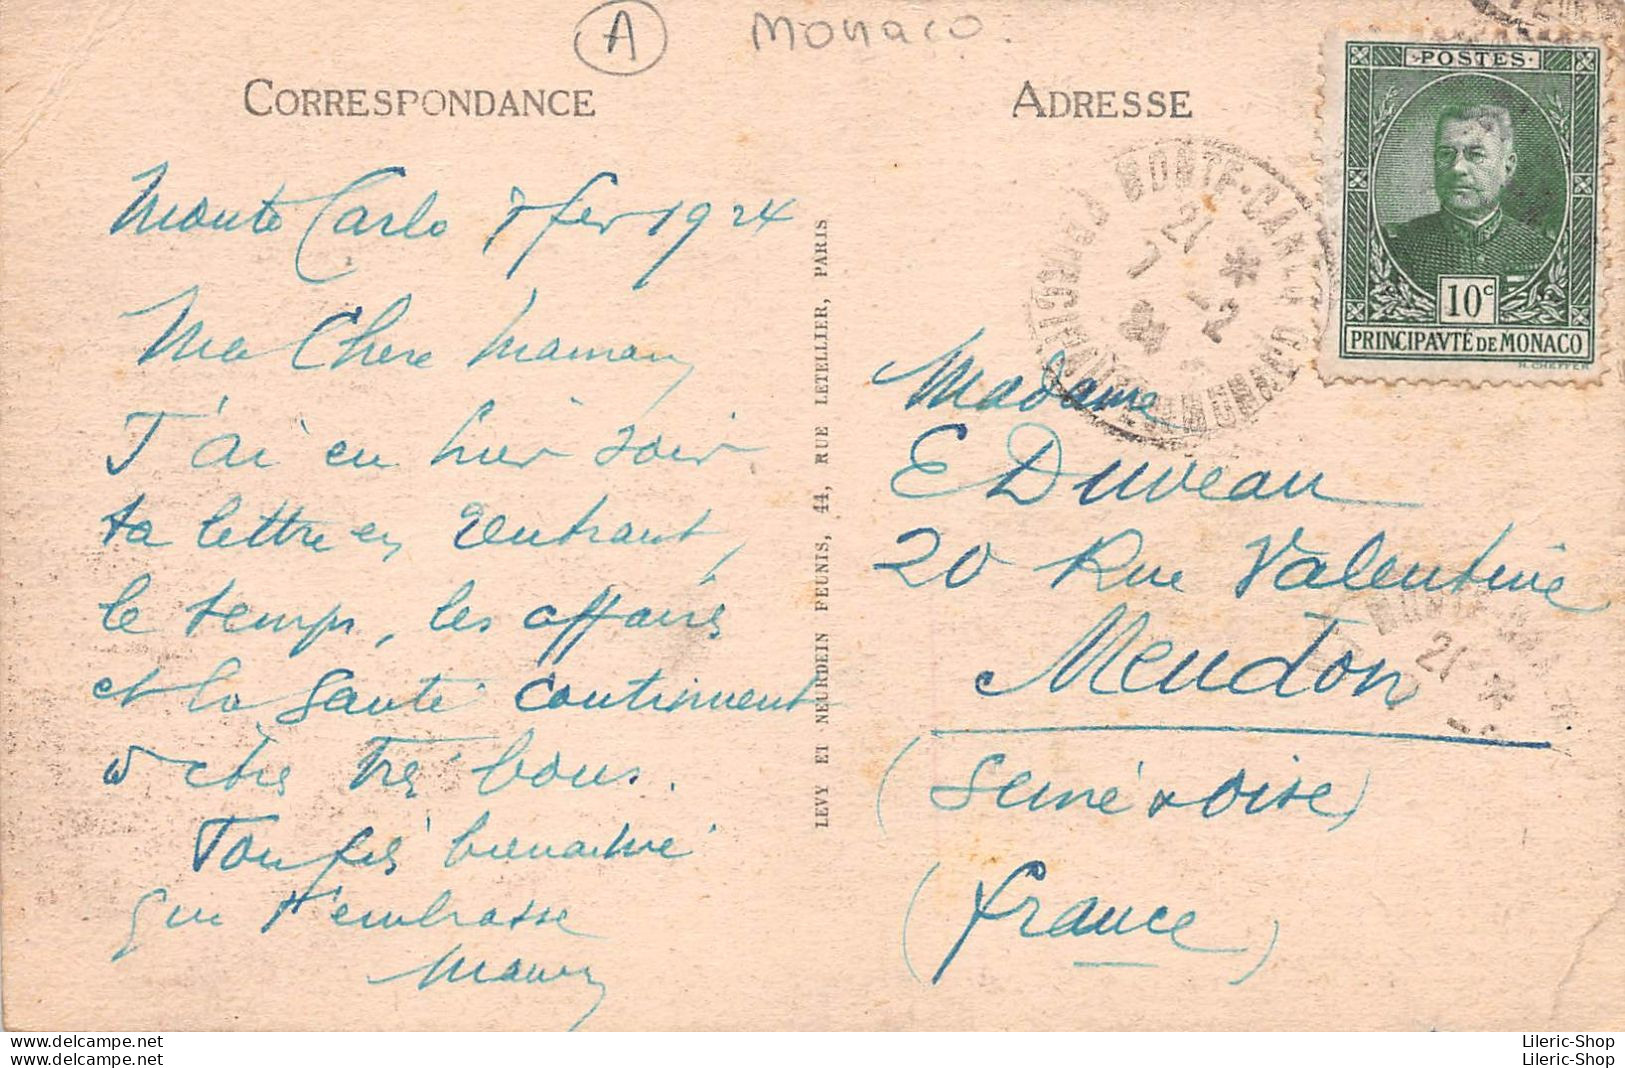 A
Monaco.
CORRESPONDANCE
Monte Carlo 7 fev 1924
Ma Chere Maman
J'ai eu hier soir
ta lettre en rentrant,
le temps, les affaires
et la santé continuent
à être très bons.
Ton fils bienaimé
qui t'embrasse
LEVY ET NEURDEIN REUNIS, 44, RUE LETELLIER, PARIS
ADRESSE
POSTES
10c
PRINCIPAVTÉ DE MONACO
H. CHEFFER
MONTE-CARLO
21 *
7 -2
PRINCIPAUTÉ DE MONACO
Madame
E Duveau
20 Rue Valentine
Meudon
(Seine & Oise)
(France)
MONTE-CARLO
21 *
Lileric-Shop
Lileric-Shop
Lileric-Shop
Lileric-Shop